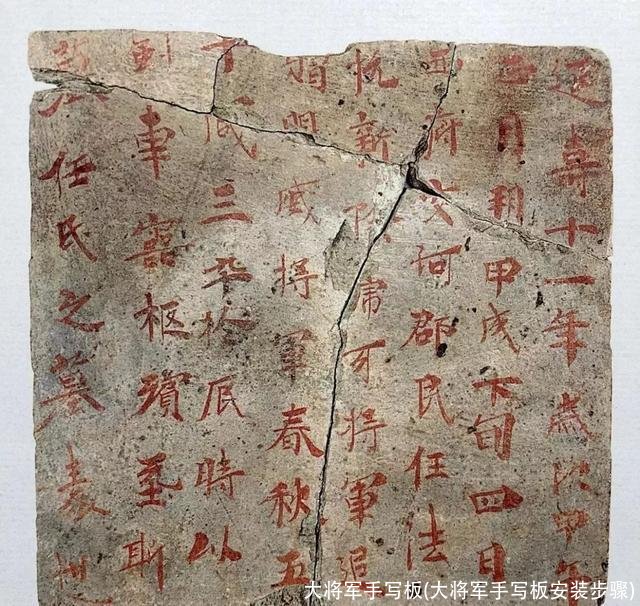 延壽十一年歲次甲午
正月朔甲戌下旬四日
西府交河郡民任法
悅新除虎牙將軍追
贈明威將軍春秋五
十咸三卒於辰時以
車靈柩殯
任氏之墓表
大将军手写板(大将军手写板安装步骤)